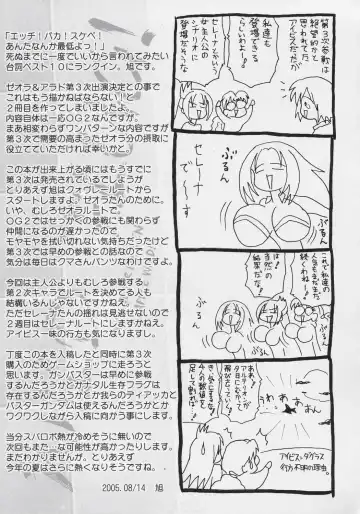 「エッチ！バカ！スケベ！
あんたなんか最低よっ！」
死ぬまでに一度でいいから言われてみたい
台詞ベスト１０にランクイン。旭です。
ゼオラ＆アラド第３次出演決定との事で
これはもう描かねばならない！と
２冊目を作ってしまいましたよ。
内容自体は一応ＯＧ２なんですが
まあ相変わらずワンパターンな内容ですが
第３次で需要の高まったゼオラ分の摂取に
役立てていただければ幸いかと。
この本が出来上がる頃にはもうすでに
第３次は発売されているでしょうが
とりあえず旭はクォヴレールートから
スタートしますよ。ゼオラたんのために。
いや、むしろゼオラルートで。
ＯＧ２ではせっかくの参戦にも関わらず
仲間になるのが遅かったので
モヤモヤを拭い切れない気持ちだったけど
第３次では早めの参戦との話なので
気分は毎日はクマさんパンツなわけですよ。
今回は主人公よりもむしろ参戦する
第２次キャラでルートを決めてる人も
結構いるんじゃないですかねえ。
ただセレーナたんの揺れは見逃せないので
２週目はセレーナルートにしますかねえ。
アイビス一味の行方も気になりますし。
丁度この本を入稿したと同時に第３次
購入のためゲームショップに走ろうと
思います。ガンバスターは早めに参戦
するんだろうかとかナタル生存フラグは
存在するんだろうかとか我らのティアッカと
バスターガンダムは使えるんだろうかとか
ワクワクしながら入稿に向かう事にします。
当分スパロボ熱が冷めそうに無いので
次回もまた…な可能性が高かったりします。
まだわかりませんが。とりあえず
今年の夏はさらに熱くなりそうですね。
2005.08/14　旭
第３次参戦は
絶望的かと
思われてた
アイビスだが
私達も
登場できる
らしいわ！
セレーナとかいう
女主人公の
シナリオに
登場だそうな
セレーナ
ぶるん
ぶるん
これで私達の
人気もまだまだ
続くわね！
当然の
結果だな！
ぶるん
ぶるん
うわぁぁぁ
４人の数値を
足して割れば！
アイビス・ダグラス
行方不明の理由。